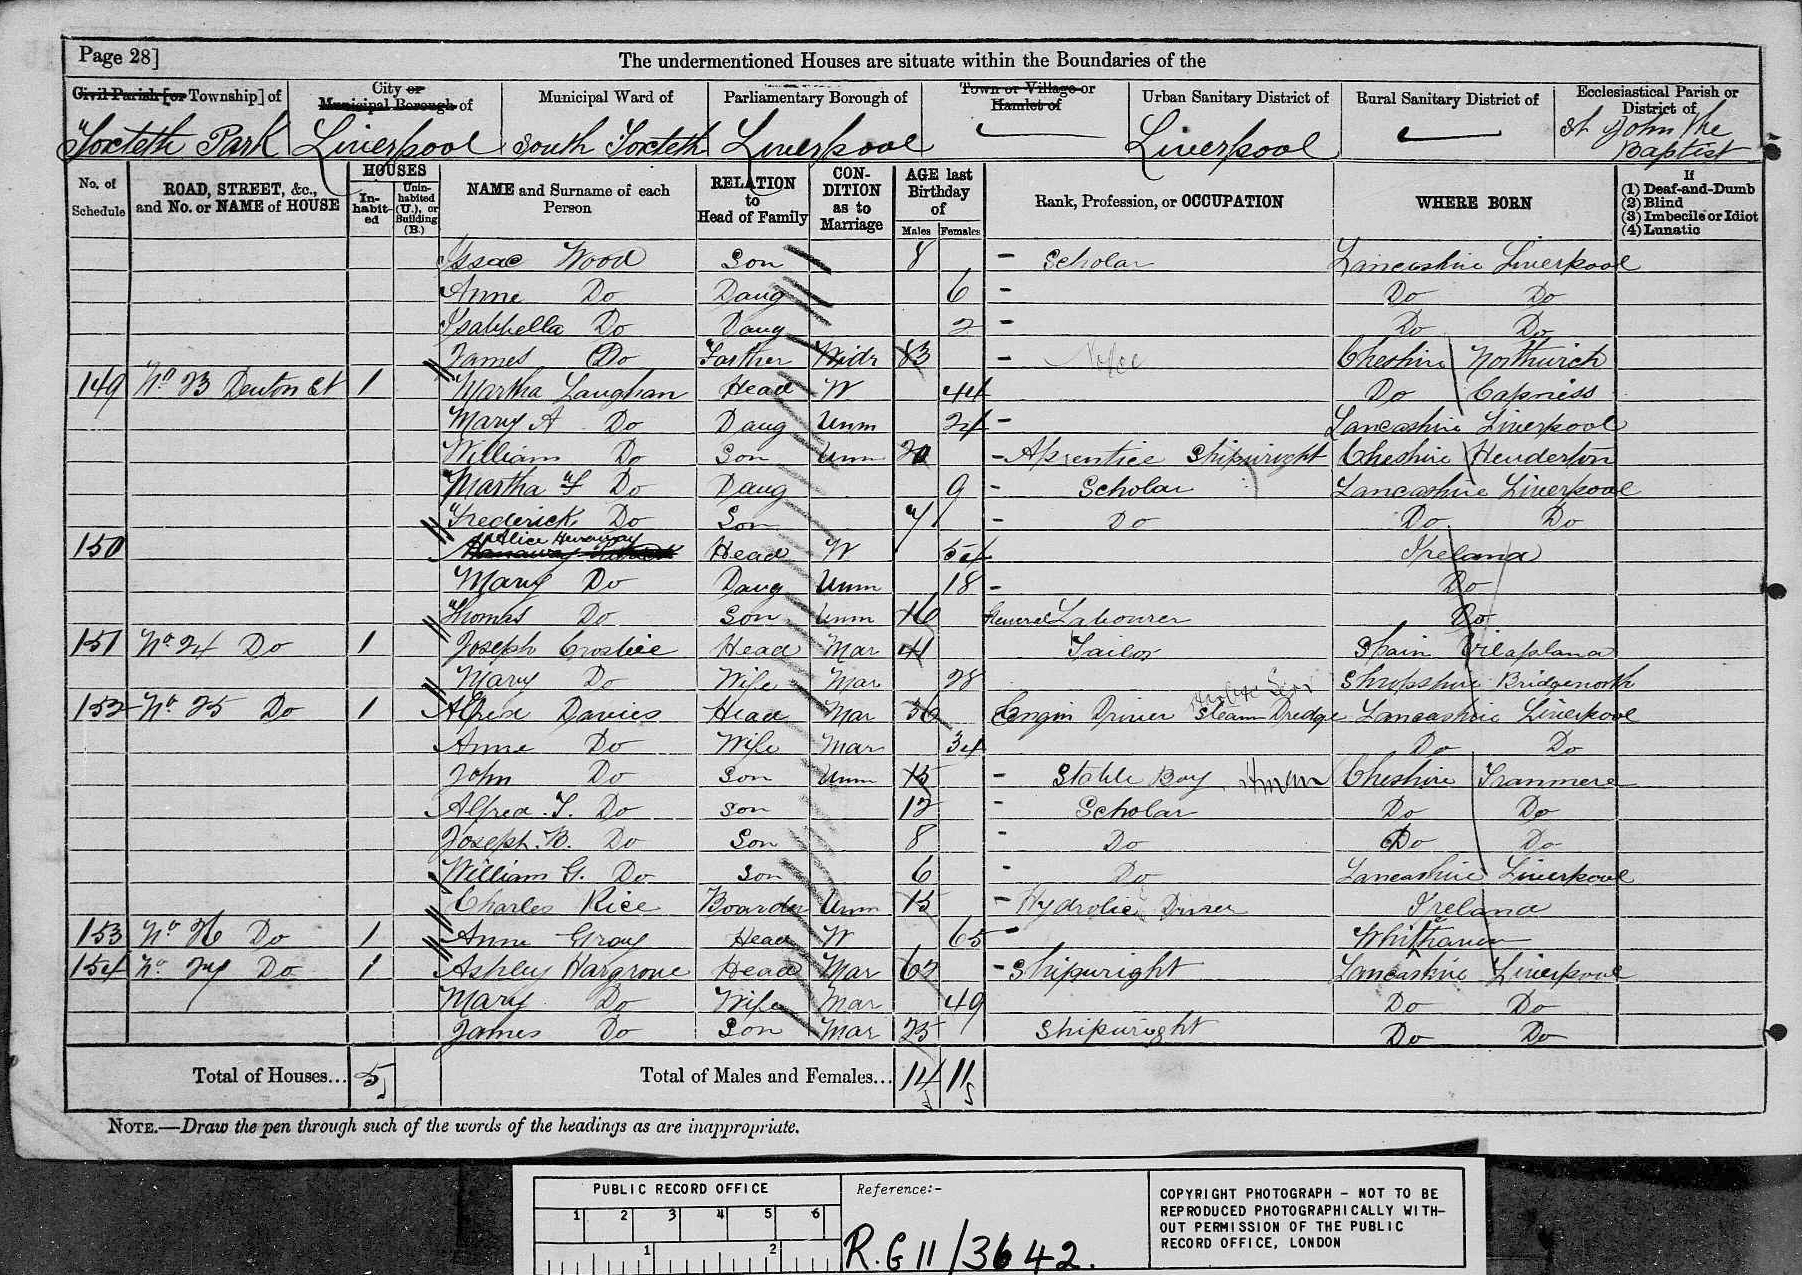 Page 28]
The undermentioned Houses are situate within the Boundaries of the
Civil Parish [or Township] of
City or Municipal Borough of
Municipal Ward of
Parliamentary Borough of
Town or Village or Hamlet of
Urban Sanitary District of
Rural Sanitary District of
Ecclesiastical Parish or District of
Toxteth Park Liverpool South Toxteth Liverpool Liverpool St John the Baptist
No. of Schedule
ROAD, STREET, &c., and No. or NAME of HOUSE
HOUSES
In-habit-ed
Unin-habited (U.), or Building (B.)
NAME and Surname of each Person
RELATION to Head of Family
CON-DITION as to Marriage
AGE last Birthday of
Males Females
Rank, Profession, or OCCUPATION
WHERE BORN
If
(1) Deaf-and-Dumb
(2) Blind
(3) Imbecile or Idiot
(4) Lunatic
Issac Wood Son 8 Scholar Lancashire Liverpool
Anne Do Daug 6 Do Do
Isabbella Do Daug 2 Do Do
James Do Farther Widr 83 Cheshire Northwich
149 No 23 Denton St 1 Martha Laughan Head W 44 Do Capniss
Mary A Do Daug Unm 24 Lancashire Liverpool
William Do Son Unm 20 Aprentice Shipwright Cheshire Henderton
Martha F Do Daug 9 Scholar Lancashire Liverpool
Frederick Do Son 7 Do Do Do
150 Alice Hanaway Head W 54 Ireland
Mary Do Daug Unm 18 Do
Thomas Do Son Unm 16 General Labourer Do
151 No 24 Do 1 Joseph Crosbie Head Mar 41 Tailor Spain Vilaplana
Mary Do Wife Mar 28 Shropshire Bridgenorth
152 No 25 Do 1 Alfred Davies Head Mar 36 Engin Driver Steam Dredge Lancashire Liverpool
Anne Do Wife Mar 34 Do Do
John Do Son Unm 15 Stable Boy Cheshire Tranmere
Alfred T. Do Son 12 Scholar Do Do
Joseph B. Do Son 8 Do Do Do
William G. Do Son 6 Do Lancashire Liverpool
Charles Rice Boarder Unm 15 Hydrolic Driver Ireland
153 No 26 Do 1 Anne Gray Head W 65 Whithaven
154 No 27 Do 1 Ashley Hargrove Head Mar 62 Shipwright Lancashire Liverpool
Mary Do Wife Mar 49 Do Do
James Do Son Mar 25 Shipwright Do Do
Total of Houses... 5 Total of Males and Females... 14 11
NOTE.—Draw the pen through such of the words of the headings as are inappropriate.
PUBLIC RECORD OFFICE
1 2 3 4 5 6
1 2
Reference:-
R.G 11/3642.
COPYRIGHT PHOTOGRAPH - NOT TO BE
REPRODUCED PHOTOGRAPHICALLY WITH-
OUT PERMISSION OF THE PUBLIC
RECORD OFFICE, LONDON